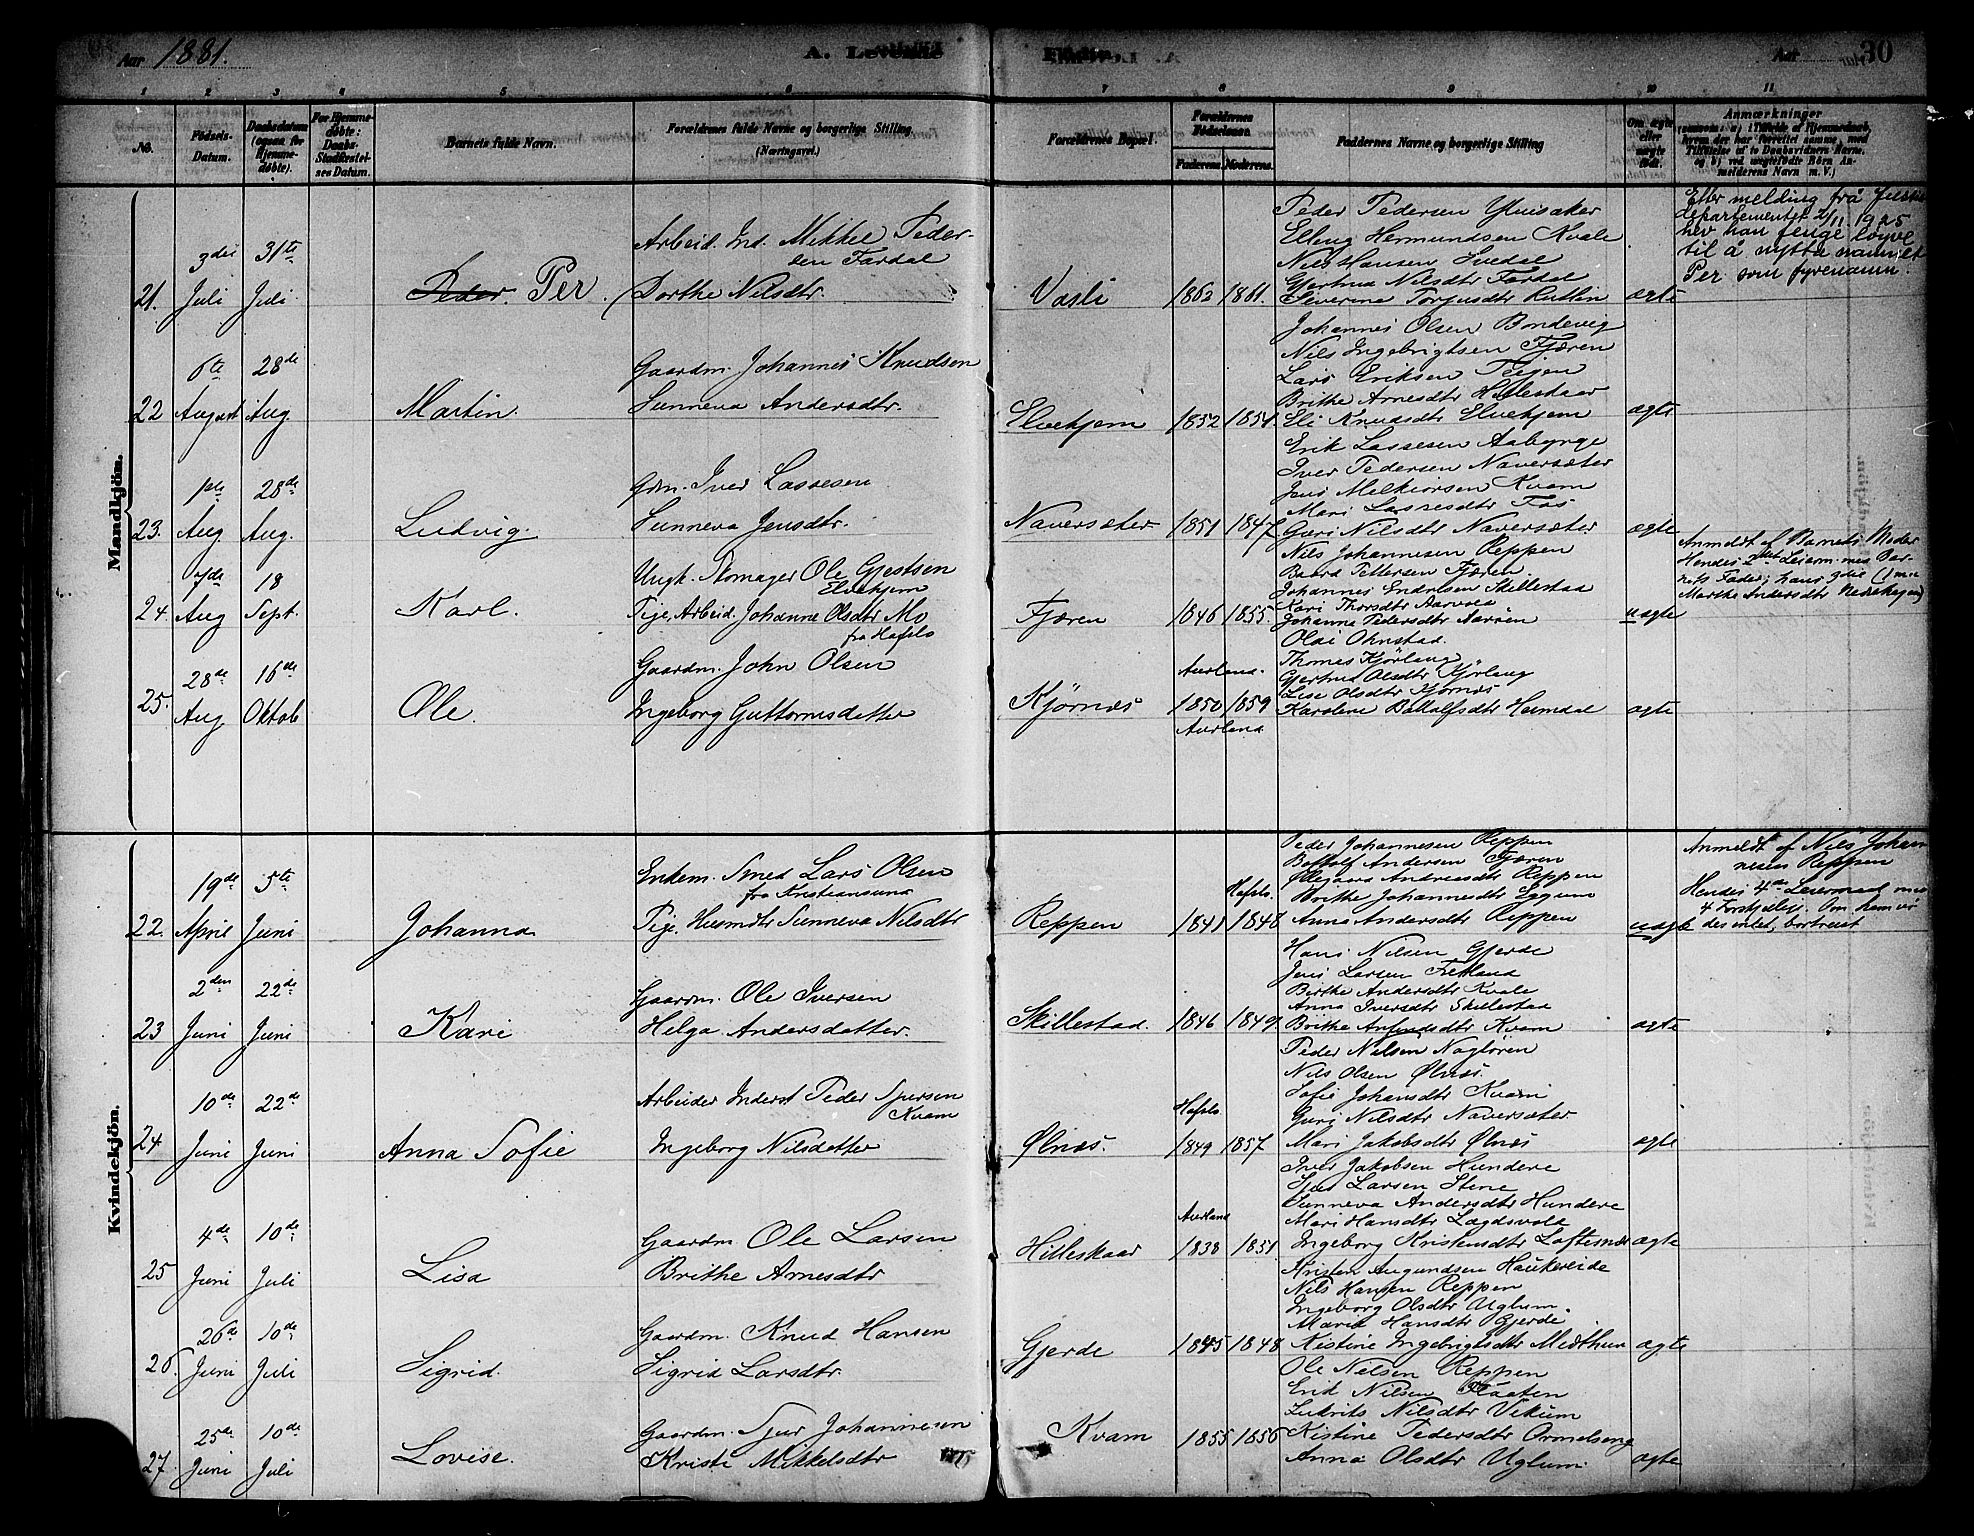 Aar 1881.
A. Levende
Fødte.
Aar
30
1 2 3 4 5 6 7 8 9 10 11
No.
Födsels-Datum.
Daabsdatum (ogsaa for Hjemme-döbte).
For Hjemme-döbte: Daabs-Stadfæstel-ses Datum.
Barnets fulde Navn.
Forældrenes fulde Navne og borgerlige Stilling. (Næringsvei.)
Forældrenes Bopæl.
Forældrenes Födselsaar.
Faderens. Moderens.
Faddernes Navne og borgerlige Stilling
Om ægte eller uægte födt.
Anmærkninger
Mandkjön.
21. 3die Juli
31te Juli
Peder. Per.
Arbeid. Ind. Mikkel Peder-
sen Fardal
Dorthe Nilsdtr.
Vasli
1862 1861.
Peder Pedersen Ylvisaker
Elling Hermundsen Kvale
Nils Hansen Svedal
Gjertrud Nilsdtr Fardal
Severine Torjusdtr Rutlin
ægte
Etter melding frå Justis
departementet 2/11 1925
hev han fenge løyve
til å nytta namnet
Per som fyrenamn.
22 6te August
28de Aug.
Martin.
Gaardm. Johannes Knudsen
Sunneva Andersdtr.
Elvekjem
1852 1854.
Johannes Olsen Bondevig
Nils Ingebrigtsen Fjæren
Lars Eriksen Teigen
Brithe Arnesdtr Hilleskaar
Eli Knudsdtr Elvekjem
ægte
23. 1ste Aug.
28de Aug.
Ludvig.
Gdm. Iver Lassesen
Sunneva Jensdtr.
Naversæter
1851 1847
Erik Lassesen Aaberge
Iver Pedersen Naversæter
Jens Melkiorsen Kvam
Mari Lassesdtr Fos
Guri Nilsdtr Naversæter
ægte
24. 7de Aug
18 Sept.
Karl.
Ungk. Stomager Ole Gjestsen
Elvekjem
Pige, Arbeid. Johanne Olsdtr Mo
fra Hafslo
Fjæren
1846 1855.
Nils Johannesen Reppen
Baard Pettersen Fjæren.
Johannes Endresen Skillestad
Kari Thorsdtr Aarvold
Johanna Pedersdtr Navøen
uægte
Anmeldt af Barnets Moder
Hendes 2det Leierm. med Bar-
nets Fader; hans 3die (1 med
Marthe Andersdtr Nedrehagen)
25. 28de Aug
16de Oktob
Ole.
Gaardm. John Olsen
Ingeborg Guttormsdatter
Kjørnæs
Aurland.
1850 1859
Aurland
Olai Ohnstad.
Thomas Kjørlaug
Gjertrud Olsdtr Kjørlaug
Lise Olsdtr Kjørnæs
Karolene Bottolfsdtr Heimdal
ægte
Kvindekjön.
22. 19de April
5te Juni
Johanna
Enkem. Smed Lars Olsen
fra Kristiansund
Pige. Husmdtr Sunneva Nilsdtr
Reppen
Hafslo
1841 1848
Peder Johannesen Reppen
Bottolf Andersen Fjæren
Ølegaard Andreasdtr Reppen
Brithe Johannesdtr Eggum
Anna Andersdtr Reppen
uægte
Anmeldt af Nils Johan-
nesen Reppen
Hendes 4de Leiermaal med
4 forskjellige. Om ham vi-
des intet, bortreist
23 2den Juni
22de Juni
Kari
Gaardm. Ole Iversen
Helga Andersdatter.
Skillestad.
1846 1849
Hans Nilsen Gjerde
Jens Larsen Fretland
Birthe Andersdtr Kvale
Anna Iversdtr Skillestad
Brithe Anfindsdtr Kvam
ægte
24 10de Juni
22de Juni
Anna Sofie
Arbeider Inderst Peder Sjursen
Kvam
Ingeborg Nilsdatter
Ølnæs.
Hafslo
1849 1857
Peder Nilsen Nagløren
Nils Olsen Ølnæs.
Sofie Johansdtr Kvam
Guri Nilsdtr Naversæter
Mari Jakobsdtr Ølnæs
ægte
25 4de Juni
10de Juli
Lisa
Gaardm Ole Larsen
Brithe Arnesdtr
Hilleskaar
Aurland
1838 1851
Iver Jakobsen Hundere
Sjur Larsen Stene
Sunneva Andersdtr Hundere
Mari Hansdtr Lægdsvold
Ingeborg Kristensdtr Loftesnæs
ægte
26. 26de Juni
10de Juli
Sigrid.
Gaardm. Knud Hansen
Sigrid Larsdtr.
Gjerde
1845 1848
Kristen Augundsen Haukereide
Nils Hansen Reppen
Ingeborg Olsdtr Uglum.
Maria Hansdtr Gjerde
Kistine Ingebrigtsdtr Midthun
ægte
27. 25de Juni
10de Juli
Lovise.
Gaardm. Sjur Johannesen
Kristi Mikkelsdtr
Kvam
1855 1856
Ole Nilsen Reppen
Erik Nilsen Flaaten
Lukrits Nilsdtr Vikum
Kistine Pedersdtr Ormelseng
Anna Olsdtr Uglum.
ægte